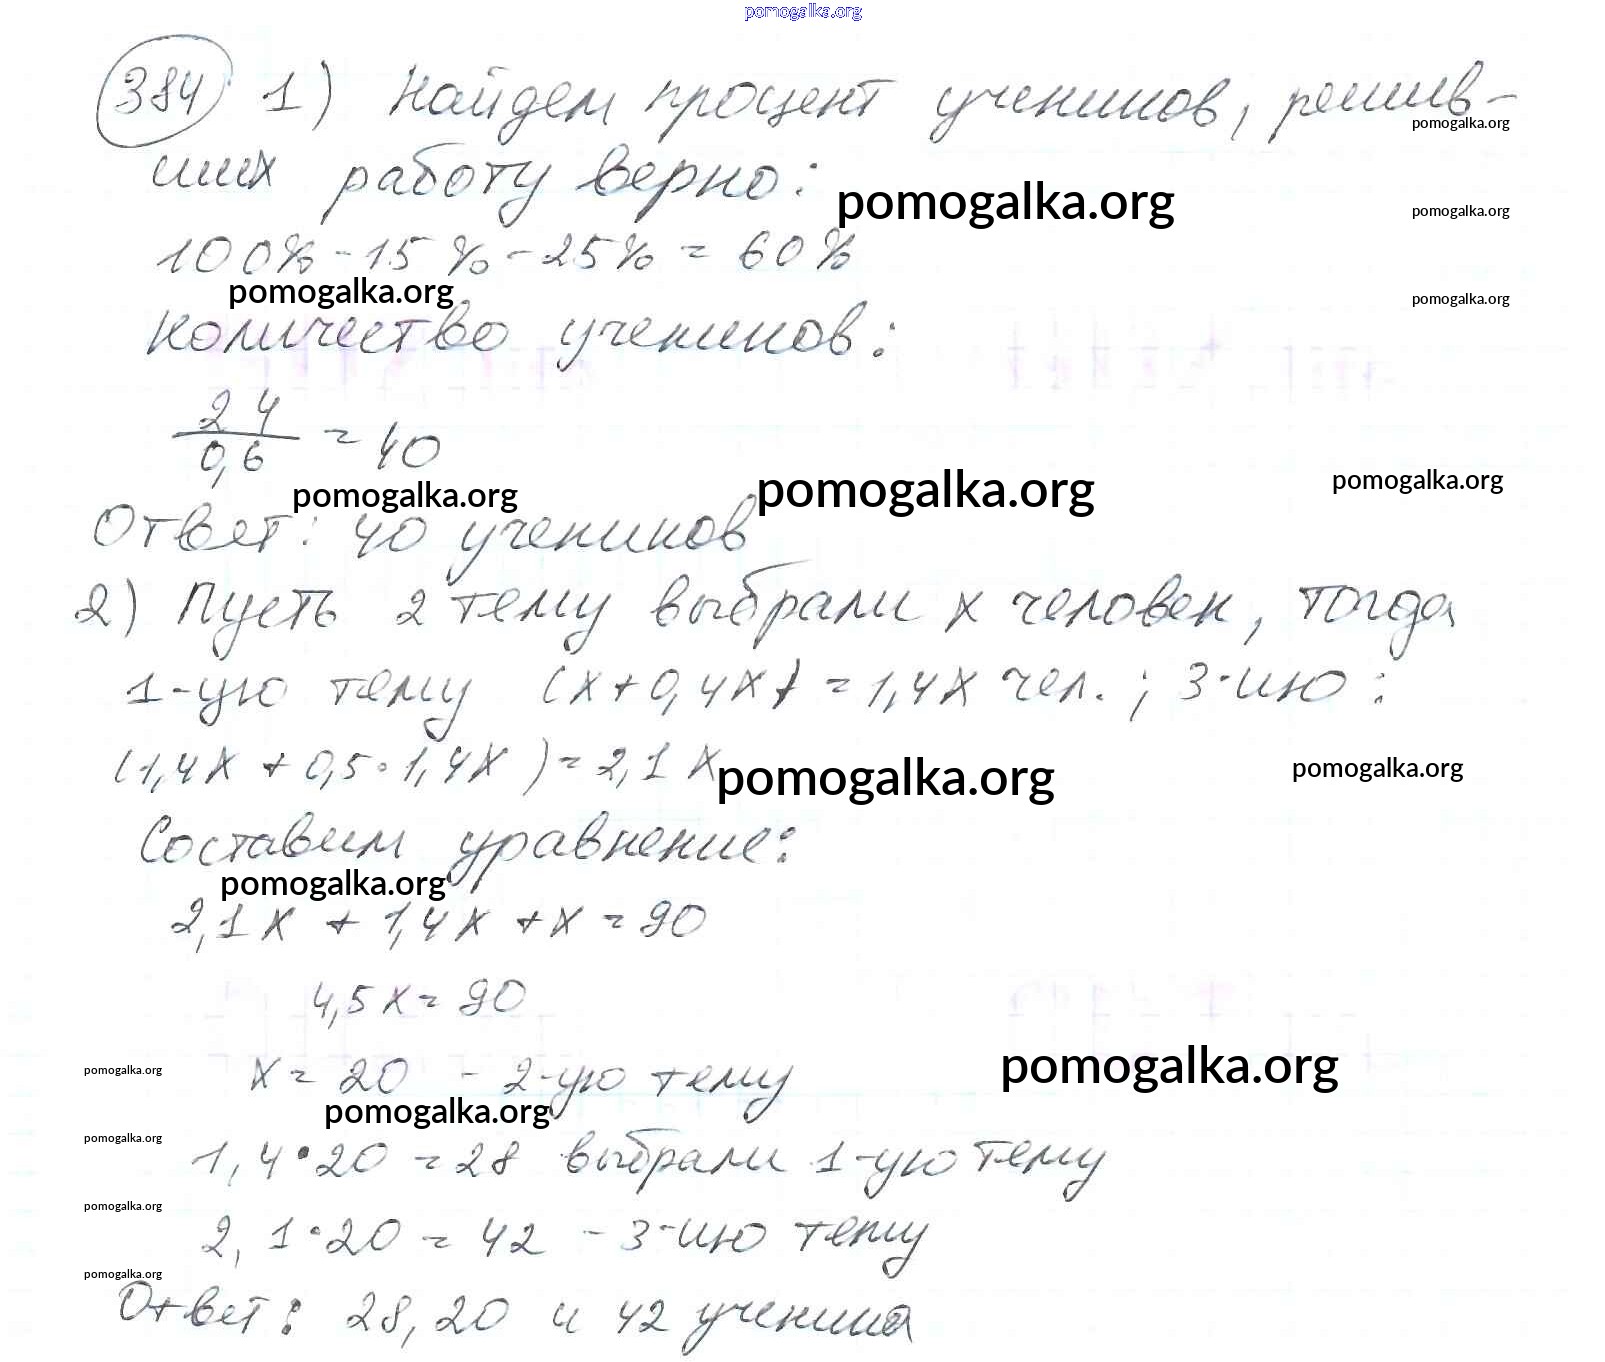 pomogalka.org
384 1) Найдем процент учеников, решив-
pomogalka.org
ших работу верно:
pomogalka.org
pomogalka.org
100% - 15% - 25% = 60%
pomogalka.org
pomogalka.org
Количество учеников:
24
/0,6 = 40
pomogalka.org
pomogalka.org
pomogalka.org
Ответ: 40 учеников
2) Пусть 2 тему выбрали x человек, тогда
1-ую тему (x + 0,4x) = 1,4x чел.; 3-ию:
(1,4x + 0,5 • 1,4x) = 2,1x
pomogalka.org
pomogalka.org
Составим уравнение:
pomogalka.org
2,1x + 1,4x + x = 90
4,5x = 90
x = 20 - 2-ую тему
pomogalka.org
pomogalka.org
pomogalka.org
1,4 • 20 = 28 выбрали 1-ую тему
pomogalka.org
pomogalka.org
2,1 • 20 = 42 - 3-ию тему
pomogalka.org
Ответ: 28, 20 и 42 ученика